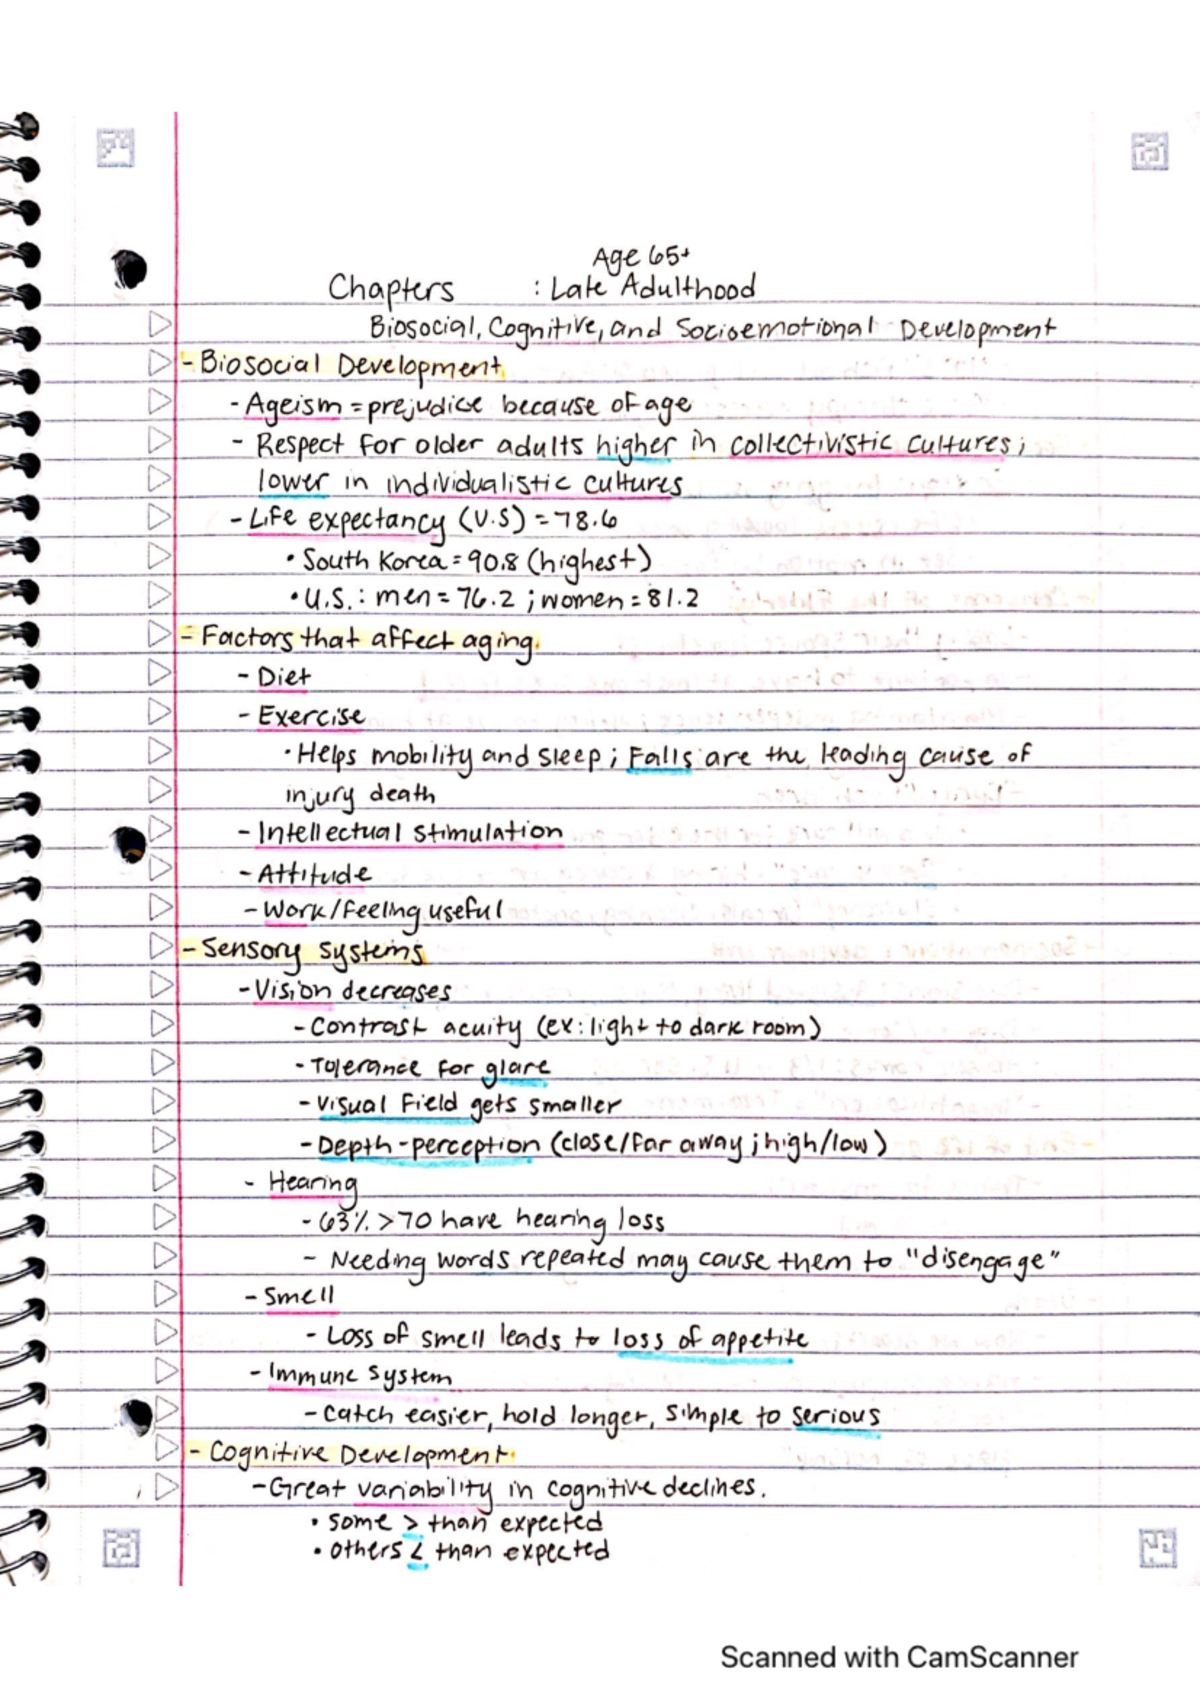 Age 65+
Chapters : Late Adulthood
Biosocial, Cognitive, and Socioemotional Development
- Biosocial Development
- Ageism = prejudice because of age
- Respect for older adults higher in collectivistic cultures;
lower in individualistic cultures
- Life expectancy (U.S) = 78.6
• South Korea = 90.8 (highest)
• U.S. : men = 76.2 ; women = 81.2
- Factors that affect aging
- Diet
- Exercise
• Helps mobility and sleep ; Falls are the leading cause of
injury death
- Intellectual stimulation
- Attitude
- Work/feeling useful
- Sensory systems
- Vision decreases
- Contrast acuity (ex: light to dark room)
- Tolerance for glare
- Visual Field gets smaller
- Depth-perception (close/far away ; high/low)
- Hearing
- 63% >70 have hearing loss
- Needing words repeated may cause them to "disengage"
- Smell
- Loss of smell leads to loss of appetite
- Immune system
- Catch easier, hold longer, simple to serious
- Cognitive Development
- Great variability in cognitive declines.
• some > than expected
• others < than expected
Scanned with CamScanner